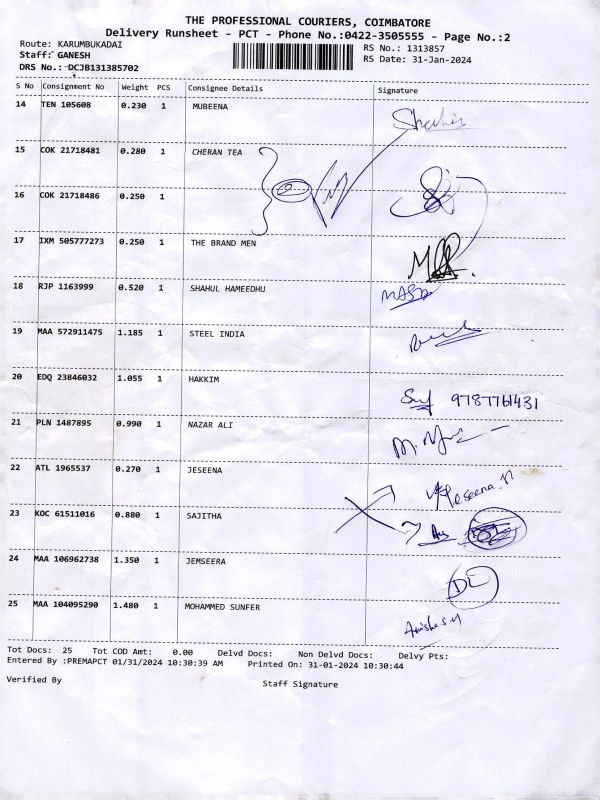 THE PROFESSIONAL COURIERS, COIMBATORE
Delivery Runsheet - PCT - Phone No.:0422-3505555 - Page No.:2
Route: KARUMBUKADAI RS No.: 1313857
Staff: GANESH RS Date: 31-Jan-2024
DRS No.: DCJB131385702
S No Consignment No Weight PCS Consignee Details Signature
14 TEN 105608 0.230 1 MUBEENA
15 COK 21718481 0.280 1 CHERAN TEA
16 COK 21718486 0.250 1
17 IXM 505777273 0.250 1 THE BRAND MEN
18 RJP 1163999 0.520 1 SHAHUL HAMEEDHU
19 MAA 572911475 1.185 1 STEEL INDIA
20 EDQ 23846032 1.055 1 HAKKIM 9787761431
21 PLN 1487895 0.990 1 NAZAR ALI
22 ATL 1965537 0.270 1 JESEENA
23 KOC 61511016 0.880 1 SAJITHA
24 MAA 106962738 1.350 1 JEMSEERA
25 MAA 104095290 1.480 1 MOHAMMED SUNFER
Tot Docs: 25 Tot COD Amt: 0.00 Delvd Docs: Non Delvd Docs: Delvy Pts:
Entered By :PREMAPCT 01/31/2024 10:30:39 AM Printed On: 31-01-2024 10:30:44
Verified By Staff Signature